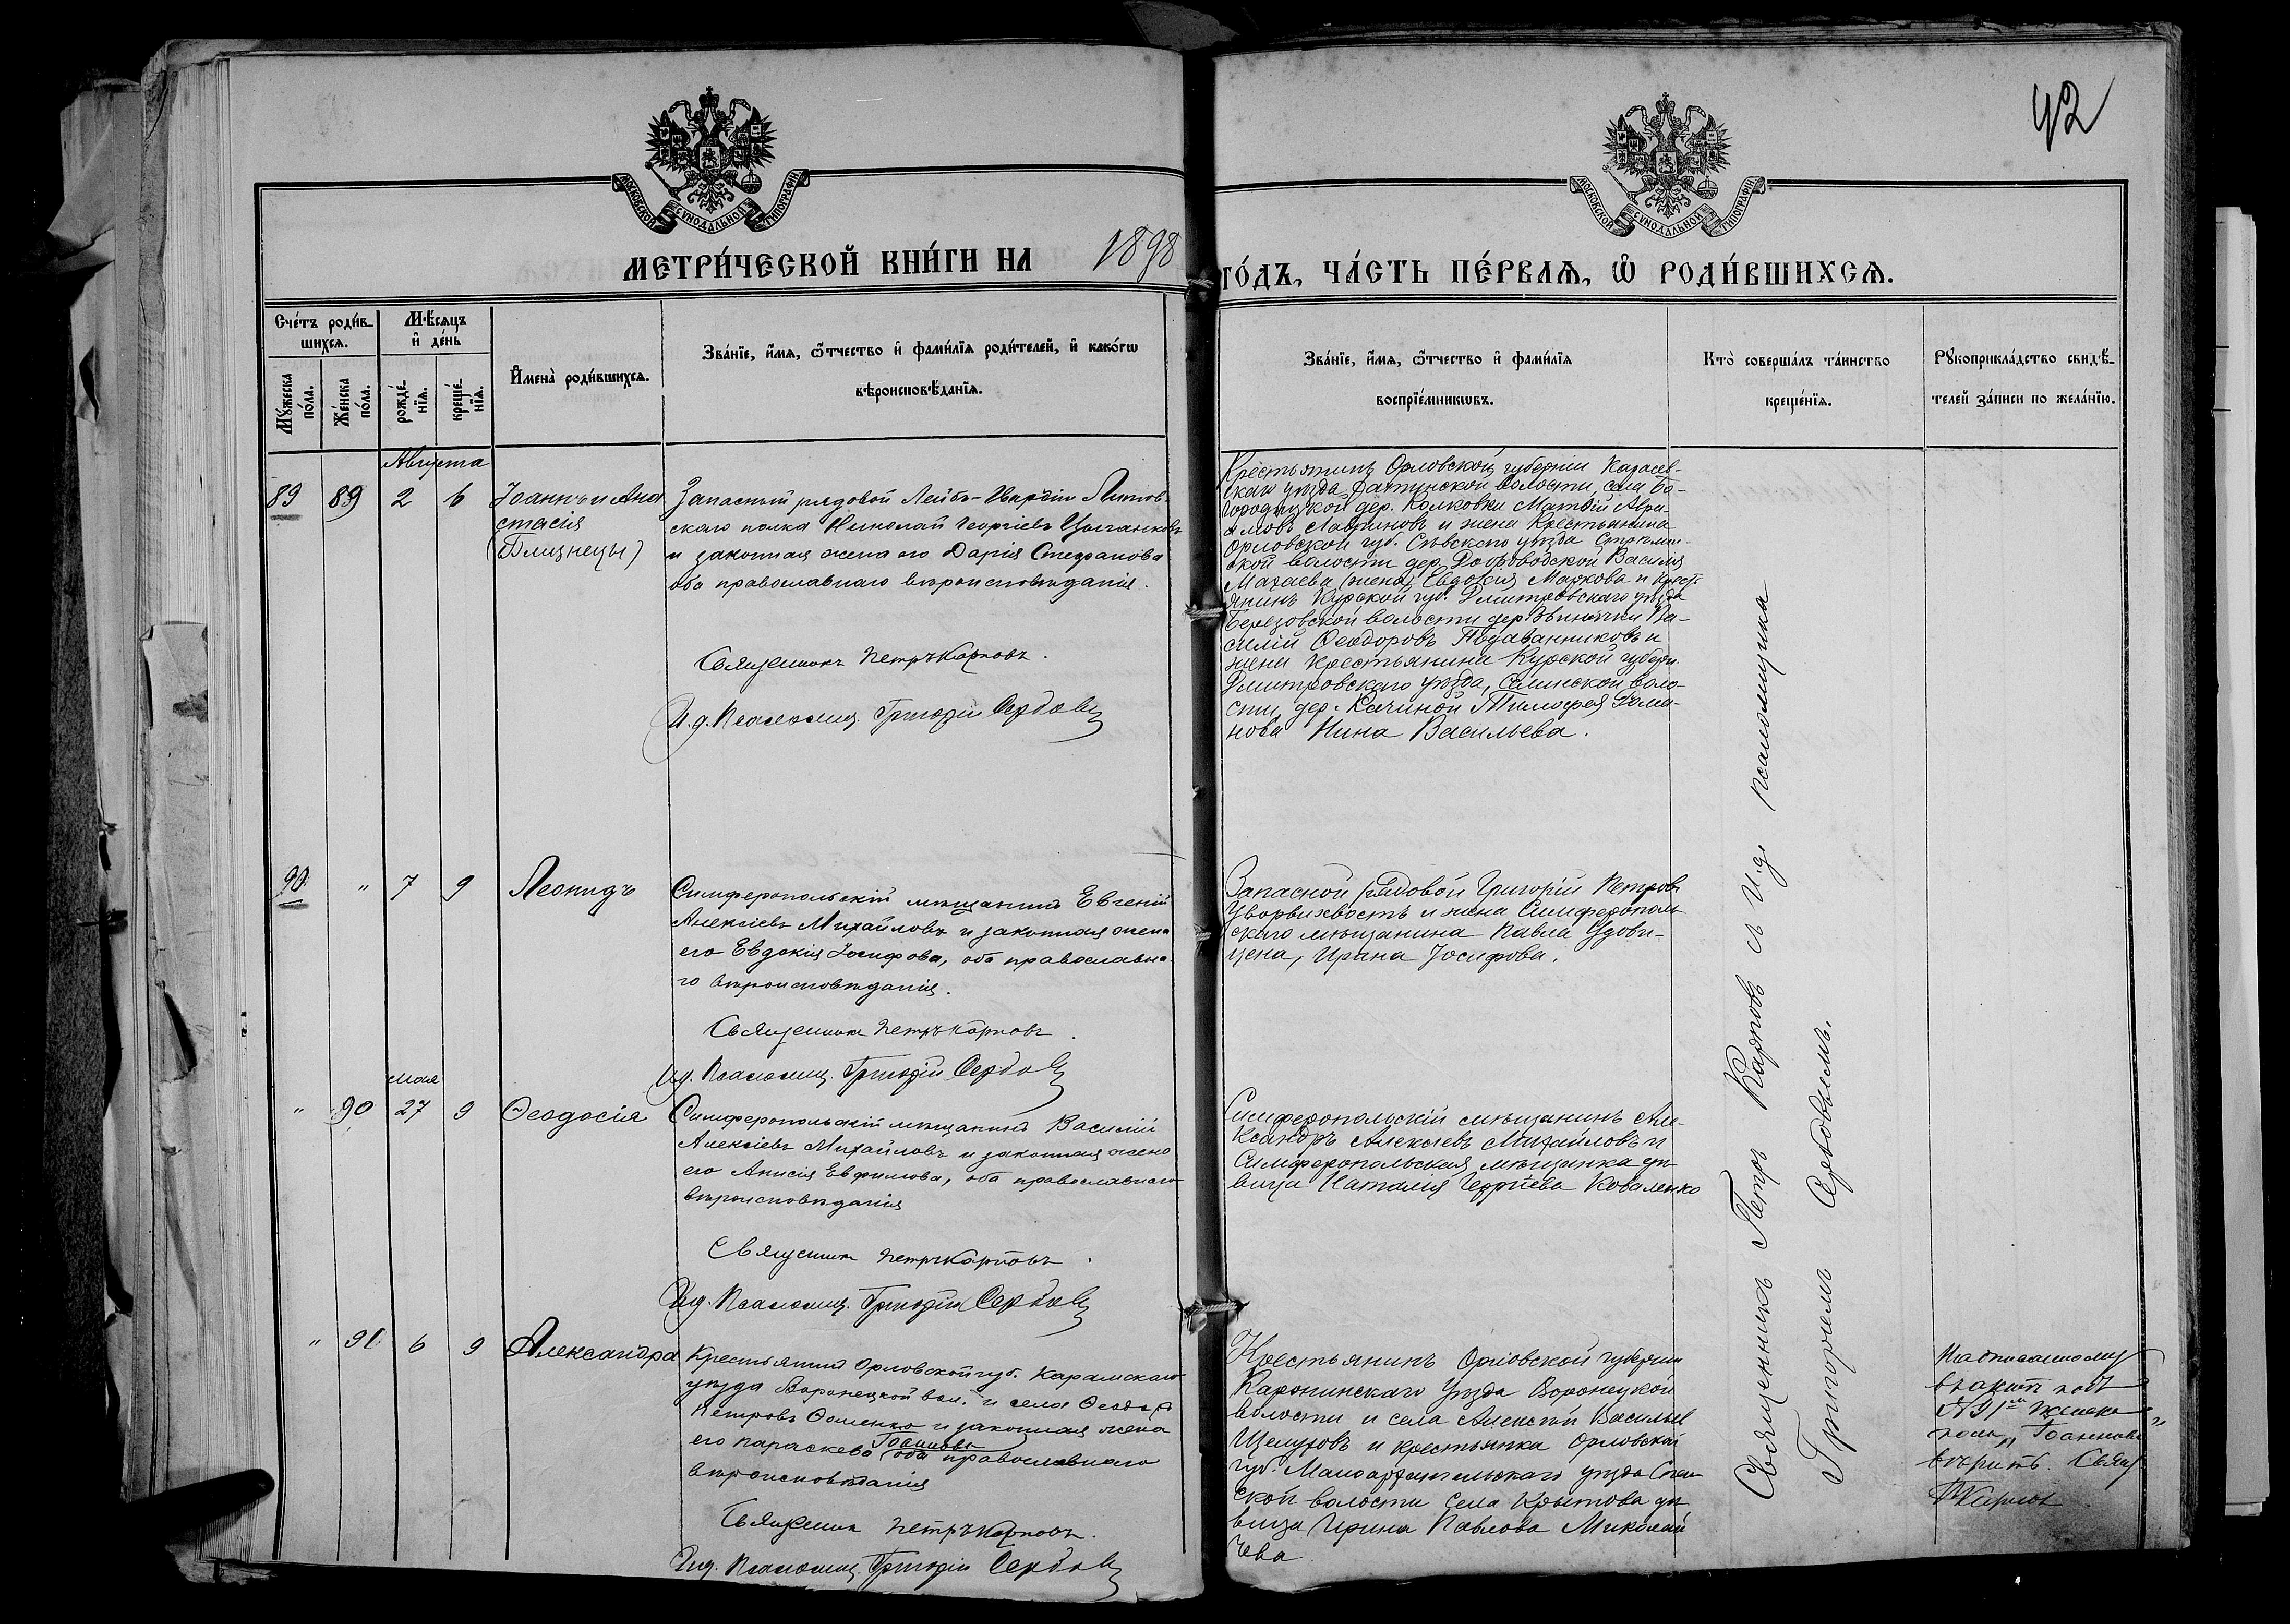 42
МОСКОВСКОЙ СѴНОДАЛЬНОЙ ТИПОГРАФІИ
МОСКОВСКОЙ СѴНОДАЛЬНОЙ ТИПОГРАФІИ
МЕТРИ́ЧЕСКОЙ КНИ́ГИ НА 1898
ГО́ДЪ, ЧА́СТЬ ПЕ́РВАѦ, Ѡ҆ РОДИ́ВШИХСѦ.
Сче́тъ роди́в-
шихсѧ.
Мꙋ́жеска по́ла.
Же́нска по́ла.
Мѣ́сѧцъ
и҆ де́нь
рожде́-
нїѧ.
креще́-
нїѧ.
И҆мена̀ роди́вшихсѧ.
Зва́нїе, и҆́мѧ, ѻ҆́тчество и҆ фами́лїѧ роди́телей, и҆ како́гѡ
вѣроисповѣ́данїѧ.
Зва́нїе, и҆́мѧ, ѻ҆́тчество и҆ фами́лїѧ
воспрїе́мникѡвъ.
Кто̀ соверша́лъ та́инство
креще́нїѧ.
Рꙋкоприкла́дство свидѣ́-
телей за́писи по жела́нїю.
Августа
89 89 2 6 Іоаннъ и Ана
стасія
(Близнецы)
Запасный рядовой Лейбъ-Гвардіи Литов-
скаго полка Николай Георгіевъ Цыганковъ
и законная жена его Дарія Стефанова
оба православнаго вѣроисповѣданія.
Священникъ Петръ Карповъ.
И. д. Псаломщ. Григорій Сербовъ
Крестьянинъ Орловской губерніи Карачев-
скаго уѣзда волости, села Бо-
городицкой дер. Колковки Матвій Авра-
амовъ Лавриновъ и жена Крестьянина
Орловской губ. Сѣвскаго уѣзда
ской волости дер. Доброводской Василія
Махаева (жена) Евдокія Маркова и Крест
янинъ Курской губ. Дмитровскаго уѣзда
Березовской волости дер. Ва-
силій Ѳеодоровъ и
жена крестьянина Курской губерн.
Дмитровскаго уѣзда, воло-
сти, дер. Качиной Тимофея Рома-
нова Нина Васильева.
90 " 7 9 Леонидъ
Симферопольскій мѣщанинъ Евгеній
Алексіевъ Михайловъ и законная жена
его Евдокія Іосифова, оба православна-
го вѣроисповѣданія.
Священникъ Петръ Карповъ.
И. д. Псаломщ. Григорій Сербовъ
Запасной рядовой Григорій Петровъ
и жена Симферополь
скаго мѣщанина Павла Удови-
цена, Ирина Іосифова.
Мая
" 90 27 9 Ѳеодосія
Симферопольскій мѣщанинъ Василій
Алексіевъ Михайловъ и законная жена
его Анисія Евфимова, оба православнаго
вѣроисповѣданія
Священникъ Петръ Карповъ.
И. д. Псаломщ. Григорій Сербовъ
Симферопольскій мѣщанинъ Але-
ксандръ Алексѣевъ Михайловъ и
Симферопольская мѣщанка дѣ-
вица Наталія Георгіева Коваленко
" 91 6 9 Александра
Крестьянинъ Орловской губ. Карачевскаго
уѣзда Воронецкой вол. и села Ѳеодоръ
Петровъ Фоменко и законная жена
Іоаннова
его Параскева оба православнаго
вѣроисповѣданія
Священникъ Петръ Карповъ.
И. д. Псаломщ. Григорій Сербовъ
Крестьянинъ Орловской губерніи
уѣзда Воронецкой
волости и села Алексѣй Васильев
и крестьянка Орловской
губ. Малоархангельскаго уѣзда Спас
ской волости села дѣ
вица Ирина Павлова Миколай
чева
Священникъ Петръ Карповъ съ И. д. псаломщика
Григоріемъ Сербовымъ.
Надписанному
въ актѣ подъ
№ 91 женска
пола „Іоаннова"
вѣрить. Свящ
П Карповъ